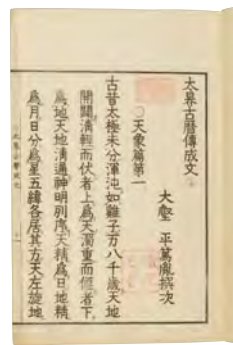 太昊古曆傳成文
大壑 平篤胤撰次
○天象篇第一
古昔太極未分渾沌如雞子万八千歳天地
開闢淸輕而伏者上爲天濁重而偃者下
爲地天地溝通神明列序天精爲日地精
爲月日分爲星五緯各居其方天左旋地